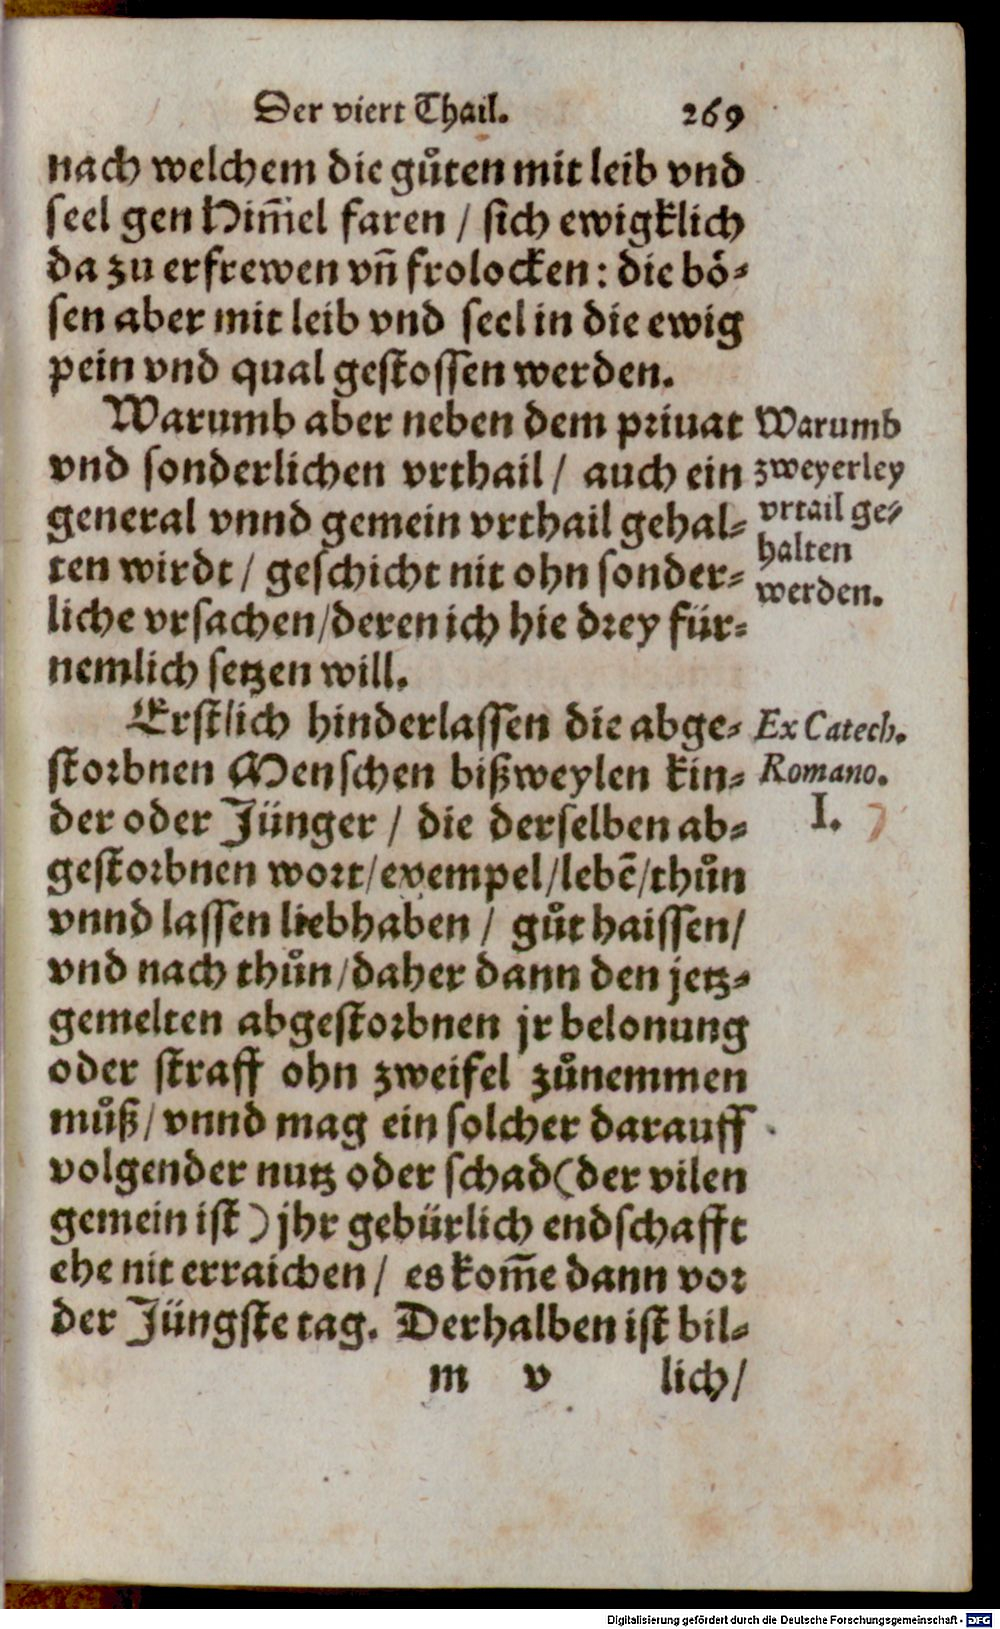 Der viert Thail. 269
nach welchem die guͦten mit leib vnd
seel gen Him̄el faren / sich ewigklich
da zu erfrewen vñ frolocken: die boͤ-
sen aber mit leib vnd seel in die ewig
pein vnd qual gestossen werden.
Warumb aber neben dem priuat
vnd sonderlichen vrthail / auch ein
general vnnd gemein vrthail gehal-
ten wirdt / geschicht nit ohn sonder-
liche vrsachen / deren ich hie drey für-
nemlich setzen will.
Warumb
zweyerley
vrtail ge-
halten
werden.
Erstlich hinderlassen die abge-
storbnen Menschen bißweylen kin-
der oder Jünger / die derselben ab-
gestorbnen wort / exempel / lebē / thuͦn
vnnd lassen liebhaben / guͦt haissen /
vnd nach thuͦn / daher dann den jetz-
gemelten abgestorbnen jr belonung
oder straff ohn zweifel zuͦnemmen
muͦß / vnnd mag ein solcher darauff
volgender nutz oder schad (der vilen
gemein ist) jhr gebürlich endschafft
ehe nit erraichen / es kom̄e dann vor
der Jüngste tag. Derhalben ist bil-
Ex Catech.
Romano.
I.
m v lich /
Digitalisierung gefördert durch die Deutsche Forschungsgemeinschaft - DFG